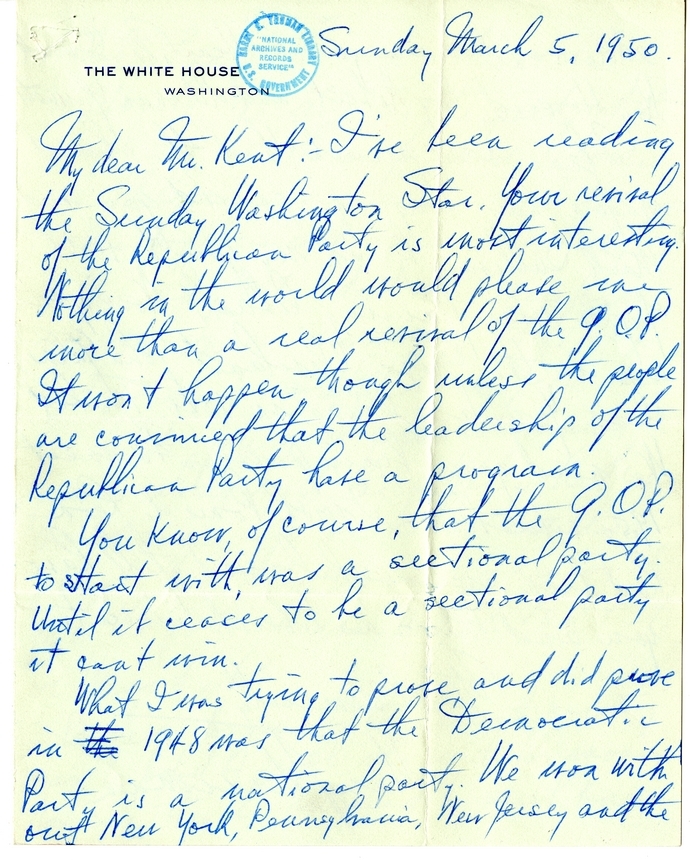 Sunday March 5, 1950.
HARRY S. TRUMAN LIBRARY
"NATIONAL
ARCHIVES AND
RECORDS
SERVICE"
U.S. GOVERNMENT
THE WHITE HOUSE
WASHINGTON
My dear Mr. Kent:- I've been reading
the Sunday Washington Star. Your revival
of the Republican Party is most interesting.
Nothing in the world would please me
more than a real revival of the G.O.P.
It won't happen though unless the people
are convinced that the leadership of the
Republican Party have a program.
You know, of course, that the G.O.P.
to start with, was a sectional party.
Until it ceases to be a sectional party
it can't win.
What I was trying to prove and did prove
in the 1948 was that the Democratic
Party is a national party. We won with
out New York, Pennsylvania, New Jersey and the